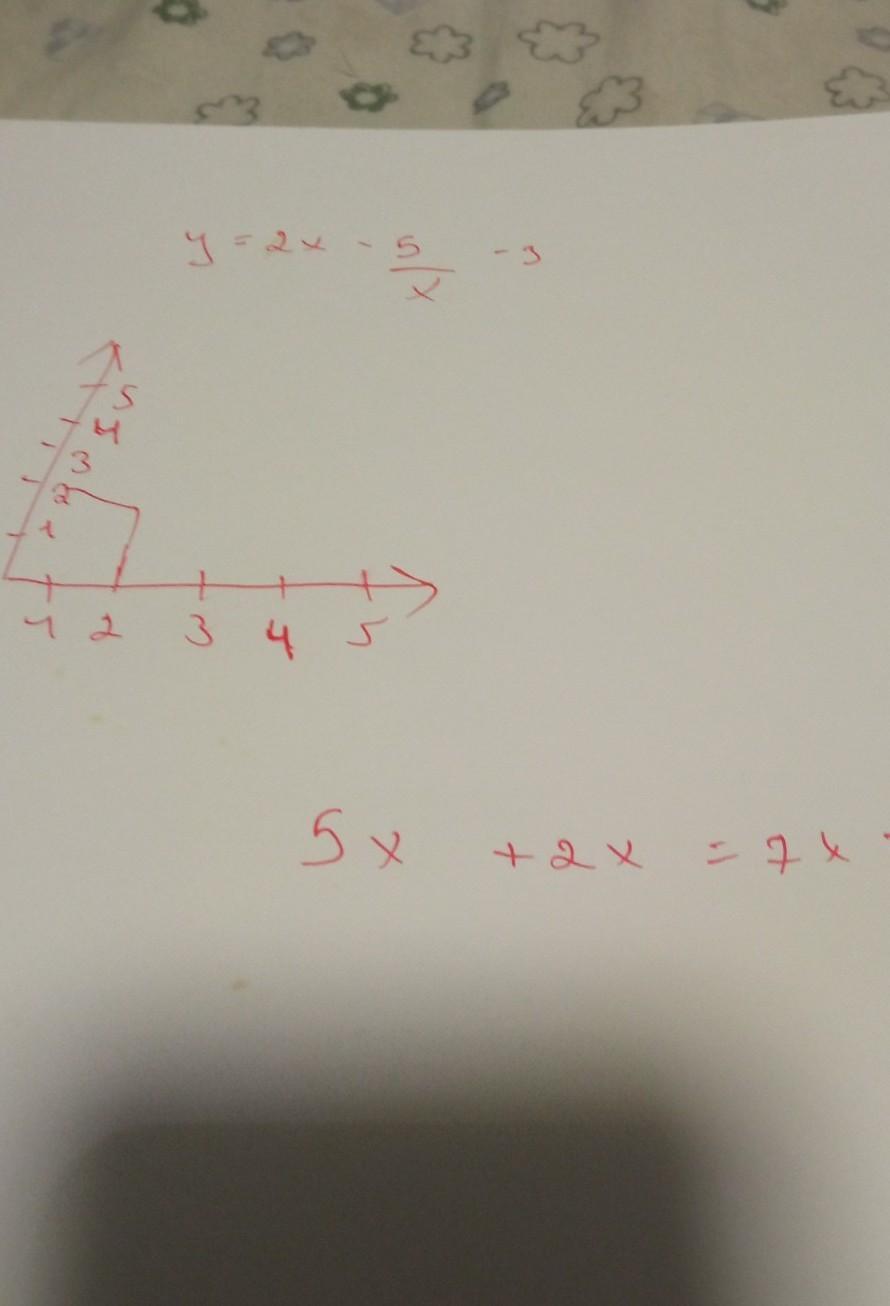 y = 2x - 5/x - 3
5
4
3
2
1
1 2 3 4 5
5x + 2x = 7x